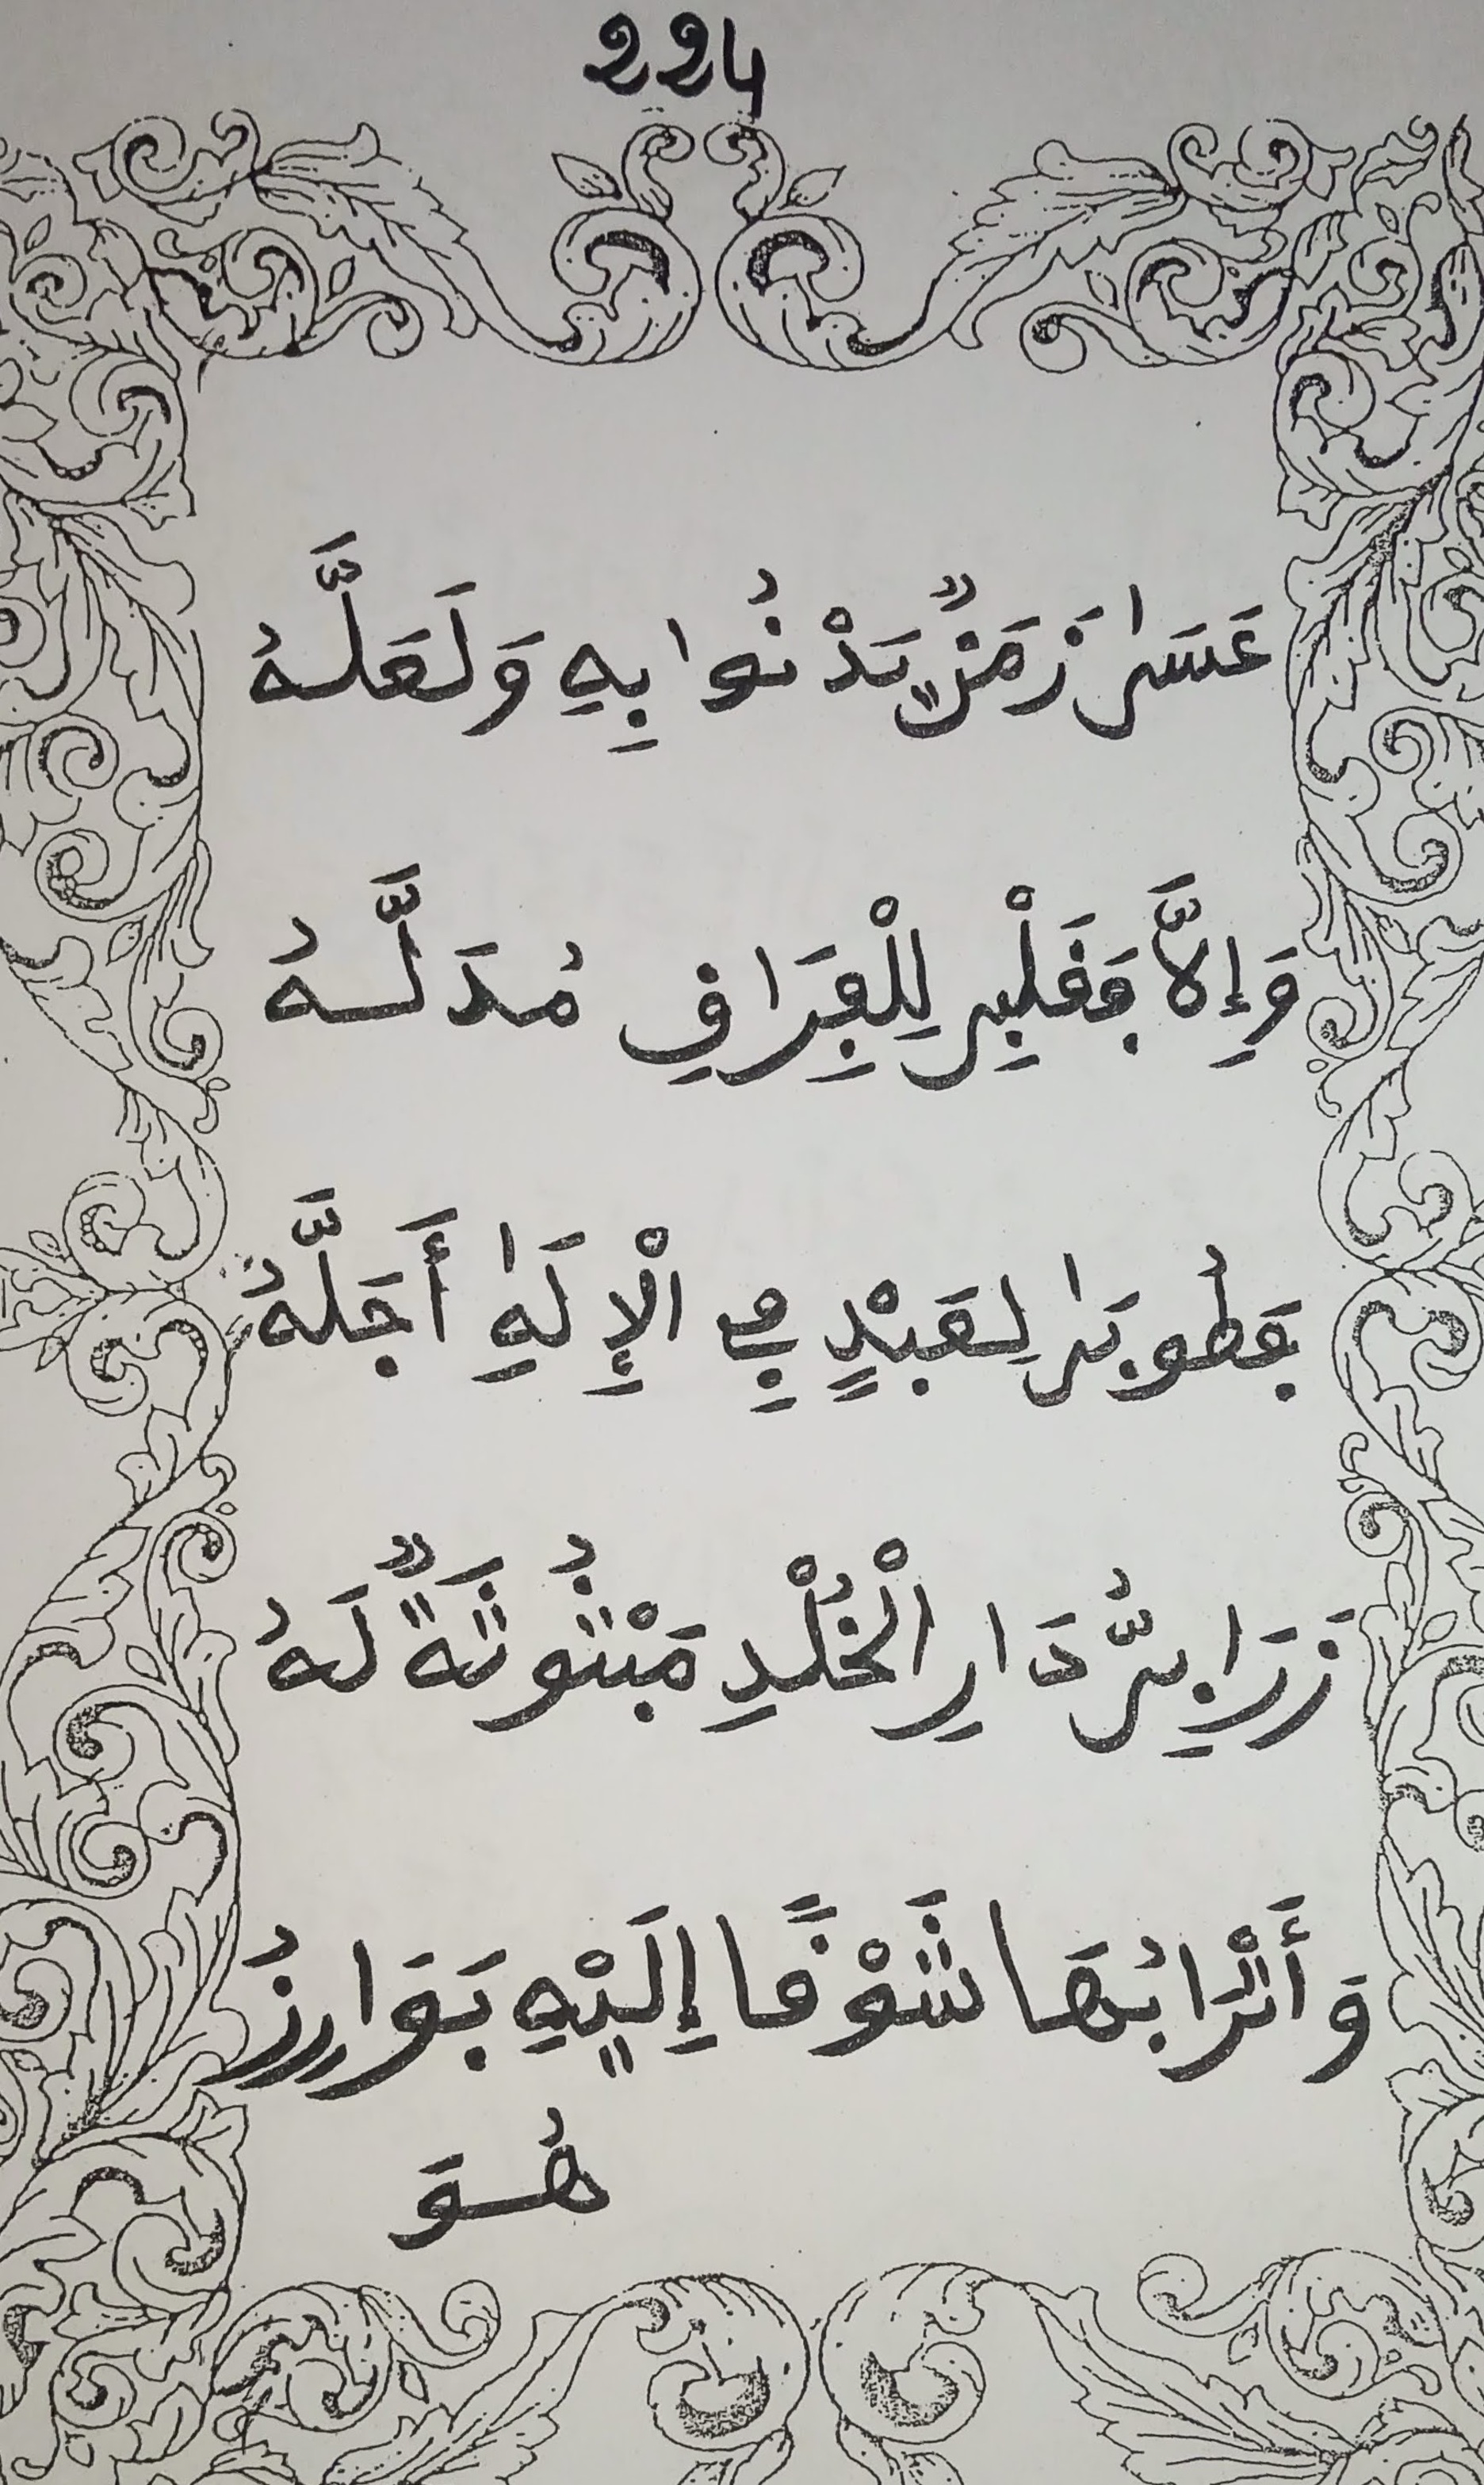 224
عَسَىٰ زَمَنٌ يَدْنُوا بِهِ وَلَعَلَّهُ
وَإِلَّا فَقَلْبِى لِلْفِرَاقِ مُدَلَّهُ
فَطُوبَىٰ لِعَبْدٍ فِى الْإِلَٰهِ أَجَلَّهُ
زَرَابِىُّ دَارِ الْخُلْدِ مَبْثُوثَةٌ لَهُ
وَأَتْرَابُهَا شَوْقًا إِلَيْهِ بَوَارِزُ
هُوَ